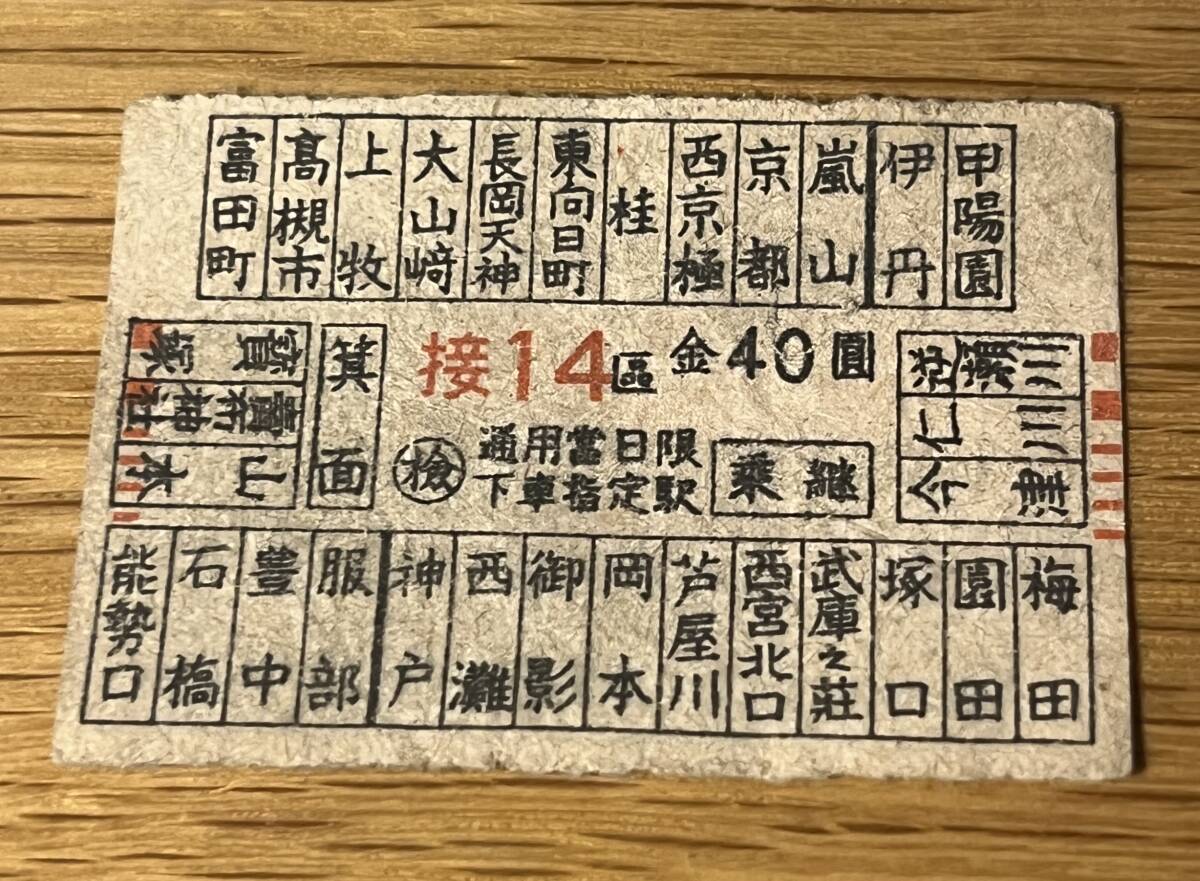 富田町
高槻市
上牧
大山崎
長岡天神
東向日町
桂
西京極
京都
嵐山
伊丹
甲陽園
寳塚
賣布神社
山本
箕面
接14區 金40圓
檢
通用當日限
下車指定駅
乗継
逆瀬川
仁川
今津
能勢口
石橋
豊中
服部
神戸
西灘
御影
岡本
芦屋川
西宮北口
武庫之荘
塚口
園田
梅田